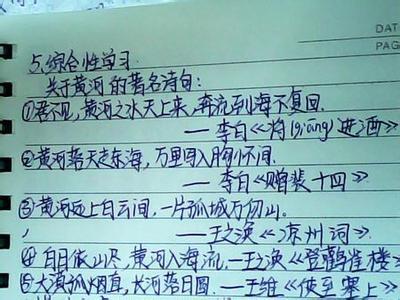 DAT
PAG
5.综合性学习
关于黄河的著名诗句:
①君不见,黄河之水天上来,奔流到海不复回.
——李白《将(qiāng)进酒》
②黄河落天走东海,万里写入胸怀间.
——李白《赠裴十四》
③黄河远上白云间,一片孤城万仞山.
——王之涣《凉州词》
④白日依山尽,黄河入海流.—王之涣《登鹳雀楼》
⑤大漠孤烟直,长河落日圆.—王维《使至塞上》